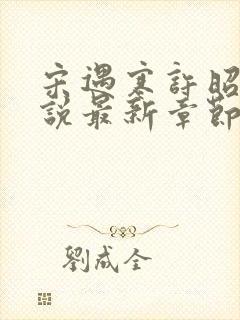 宋遇寒許昭
說最新章節
劉成全